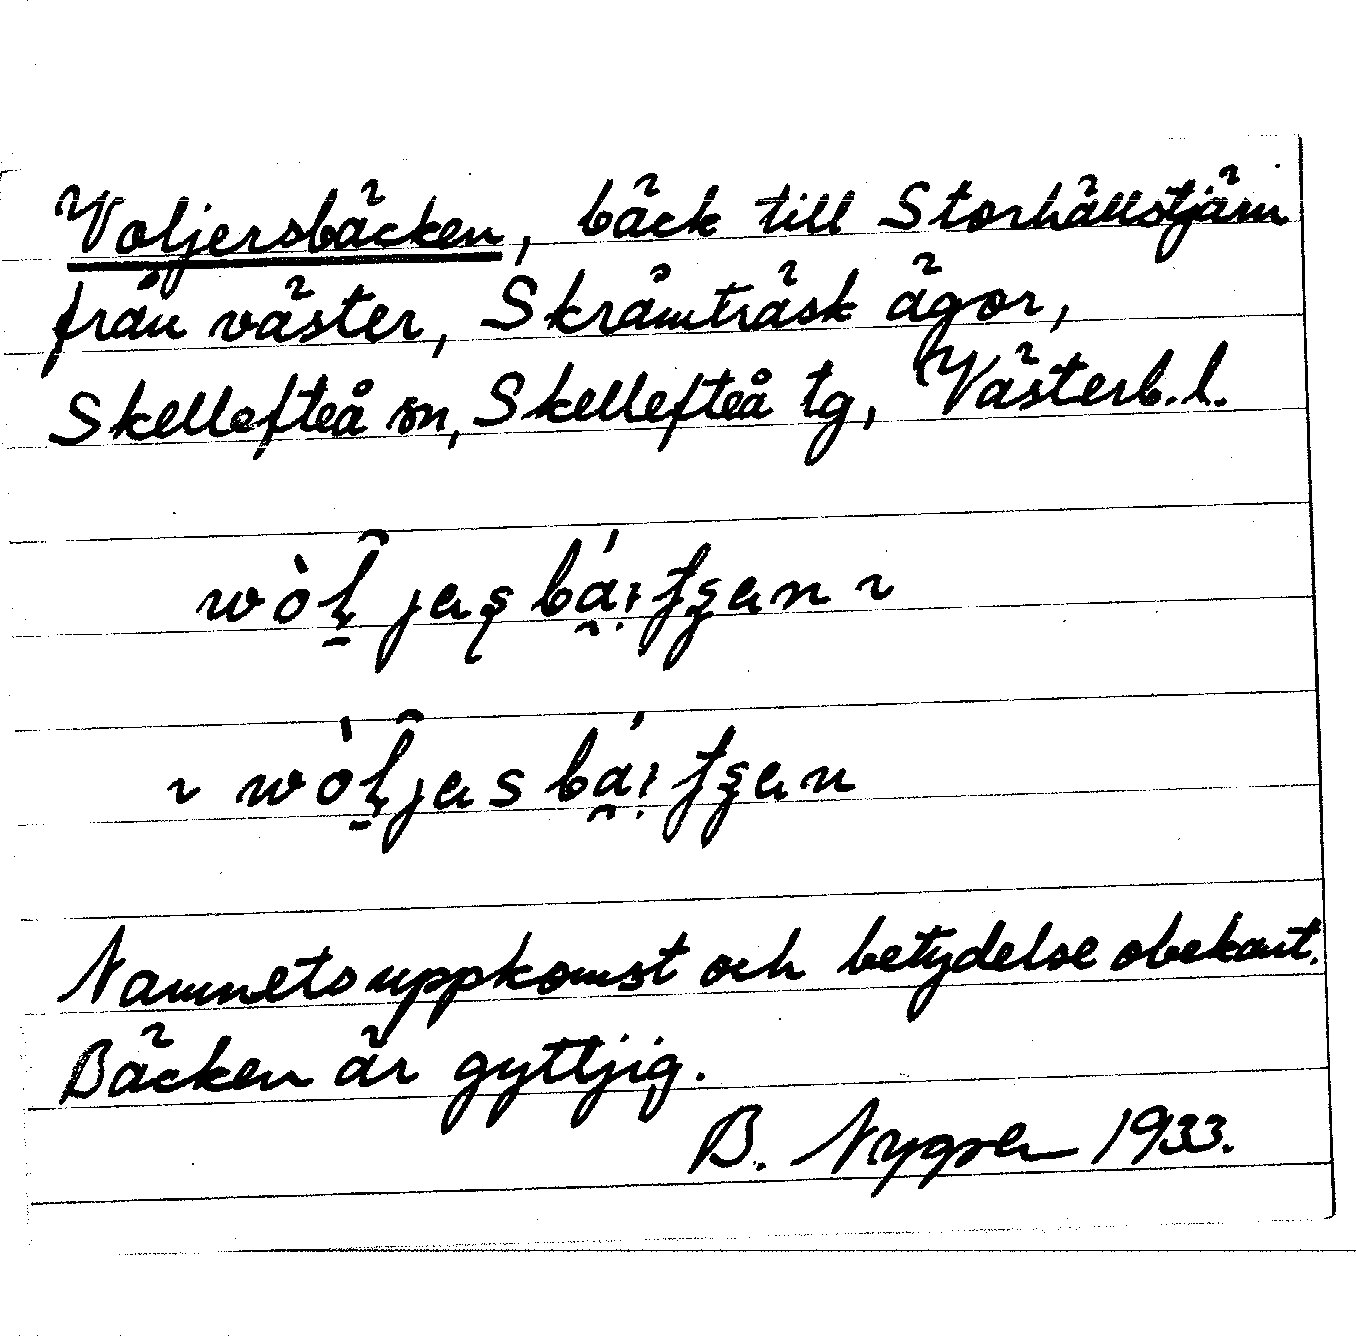 Voljersbäcken, bäck till Storhällstjärn
från väster, Skråmträsk ägor,
Skellefteå sn, Skellefteå tg, Västerb. l.
Namnets uppkomst och betydelse obekant.
Bäcken är gyttjig.
B. Nygren 1933.